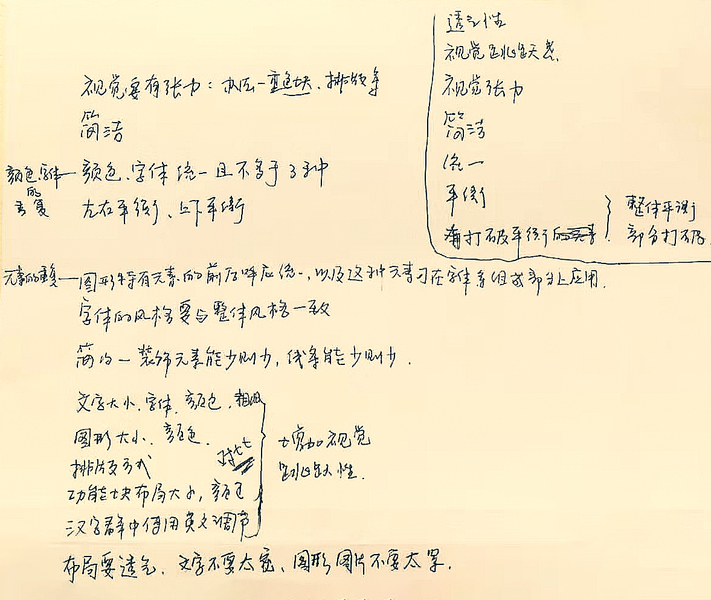 透气性
视觉跳跃关系
视觉张力
简洁
统一
平衡
打破平衡的
整体平衡
部分打破
视觉要有张力：一重色块、排线等
简洁
颜色、字体的重复
颜色、字体统一且不多于3种
左右平衡、上下平衡
元素的重复
图形特有元素的前后呼应统一，以及这种元素可在字体各组成部分上应用.
字体的风格要与整体风格一致
简约一装饰元素能少则少，线条能少则少.
文字大小、字体、颜色、粗细
图形大小、颜色.
排版方式
功能块布局大小，颜色
汉字群中使用英文调节
对比
增加视觉
跳跃性.
布局要透气、文字不要太宽、图形图片不要太罗.